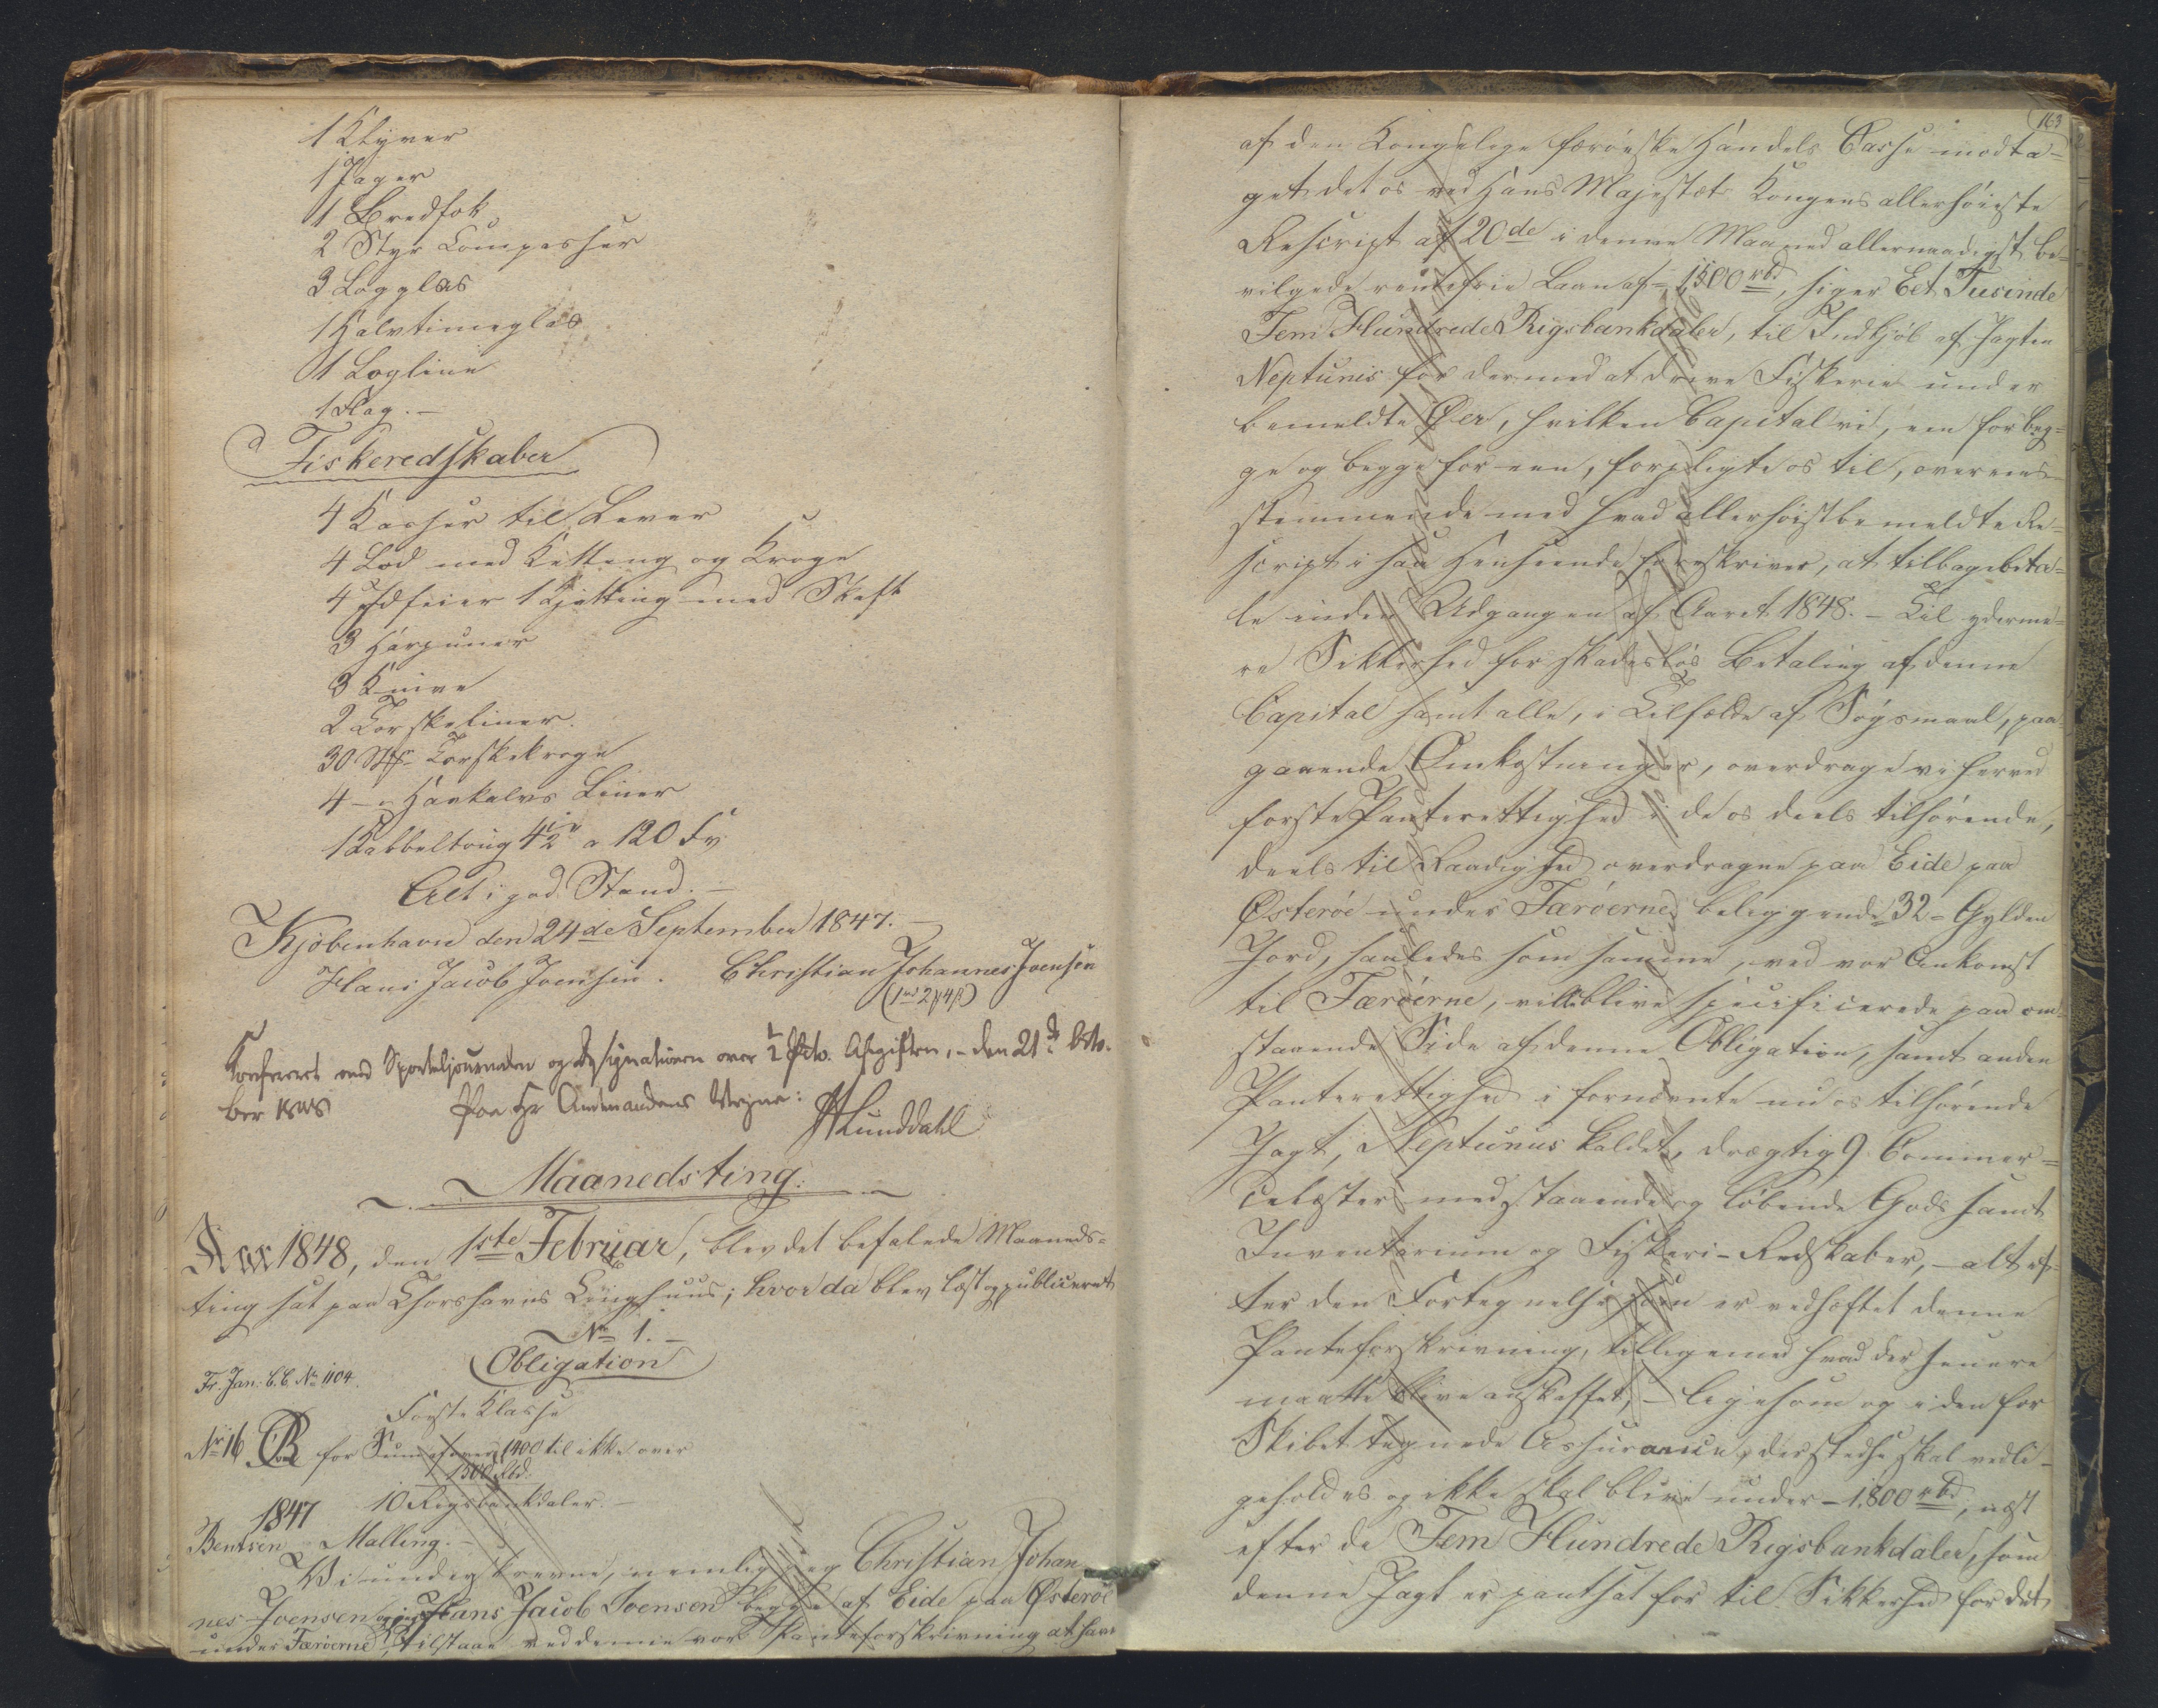 1 Klyver
1 Jager
1 Bredfok
2 Styr Compasser
3 Logglas
1 Halvtimeglas
1 Logline
1 Flag. —
Fiskeredskaber
4 Kasser til Lever
4 Lod med Kitting og Kroge
4 1 Kjetting med Skaft
3 Harpuner
3 Knive
2 Torskeliner.
30 Torskekroge
4 — Haakalvs Liner
1 Kabbeltoug 4½ a 120 Fv
Alt i god Stand. —
Kjöbenhavn den 24de September 1847. —
Hans Jacob Joensen. Christian Johannes Joensen
Confereret med Sporteljournalen og Designationen over ½ pCto. Afgiften, - den 21de Octo-
ber 1848 Paa Hr Amtmandens Vegne:
HLunddahl
Maanedsting:
Aar 1848, den 1ste Februar, blev det befalede Maaneds-
ting sat paa Thorshavns Tinghuus; hvor da blev læst og publiceret
No 1. —
Obligation
Fr. Jan. C.C. No 1104.
Første Klasse
No 16 for Summer over 1400 til ikke over
1500 Rbd.
1847 10 Rigsbankdaler. —
Bentsen Malling. —
Vi underskrevne, nemlig jeg Christian Johan-
nes Joensen og jeg Hans Jacob Joensen begge af Eide paa Østeröe
under Færöerne, tilstaae ved denne vor Panteforskrivning at have
163
af den Kongelige færöiske Handels Casse modta-
get det os ved Hans Majestæt Kongens allerhöieste
Rescript af 20de i denne Maaned allernaadigst be-
vilgede rentefrie Laan af 1500 rbd., siger Eet Tusinde
Fem Hundrede Rigsbankdaler, til Indkjöb af Jagten
Neptunus for dermed at drive Fiskerie under
bemeldte Øer, hvilken Capital vi, een for beg-
ge og begge for een, forpligte os til, overeens-
stemmende med hvad allerhöistbemeldte Re-
script i saa Henseende foreskriver, at tilbagebeta-
le inden Udgangen af Aaret 1848. — Til yderme-
re Sikkerhed for skadeslös Betaling af denne
Capital samt alle, i Tilfælde af Sögsmaal, paa-
gaaende Omkostninger, overdrage vi herved
förste Panterettighed i de os deels tilhörende,
deels til Raadighed overdragne paa Eide paa
Østeröe under Færöerne beliggende 32 - Gylden
Jord, saaledes som samme, ved vor Ankomst
til Færöerne, vil blive specificerede paa om-
staaende Side af denne Obligation, samt anden
Panterettighed i fornævnte nu os tilhörende
Jagt, Neptunus kaldet, drægtig 9 Commer-
celæster med staaende og löbende Gods samt
Inventarium og Fiskeri-Redskaber, — alt ef-
ter den Fortegnelse som er vedhæftet denne
Panteforskrivning, tilligemed hvad der senere
maatte blive anskaffet, — ligesom og i den for
Skibet tegnede Assurance, der stedse skal vedli-
geholdes og ikke skal blive under - 1,800 rbd, næst
efter de Fem Hundrede Rigsbankdaler, som
denne Jagt er pantsat for til Sikkerhed for det